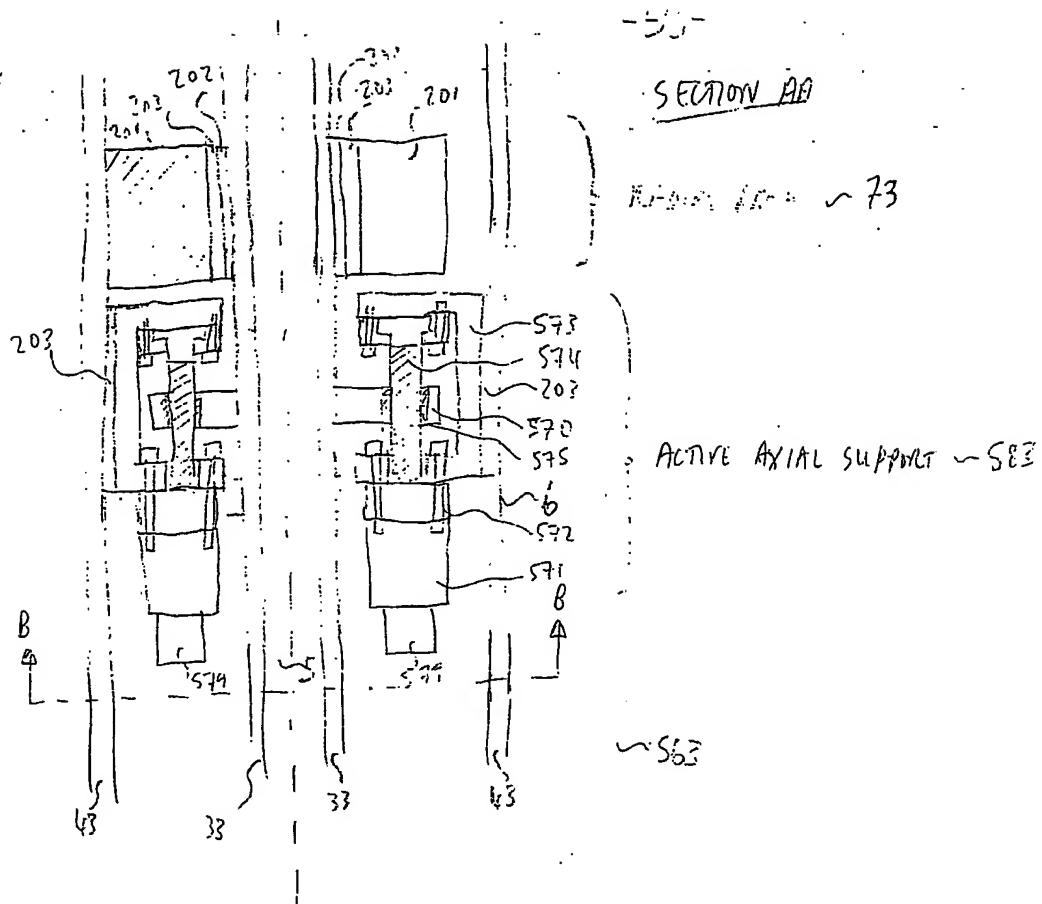 SECTION AA
202
203
201
203
201
~ 73
573
574
203
203
570
575
ACTIVE AXIAL SUPPORT ~ 583
6
572
571
B
B
579
5
579
~ 563
43
33
33
43